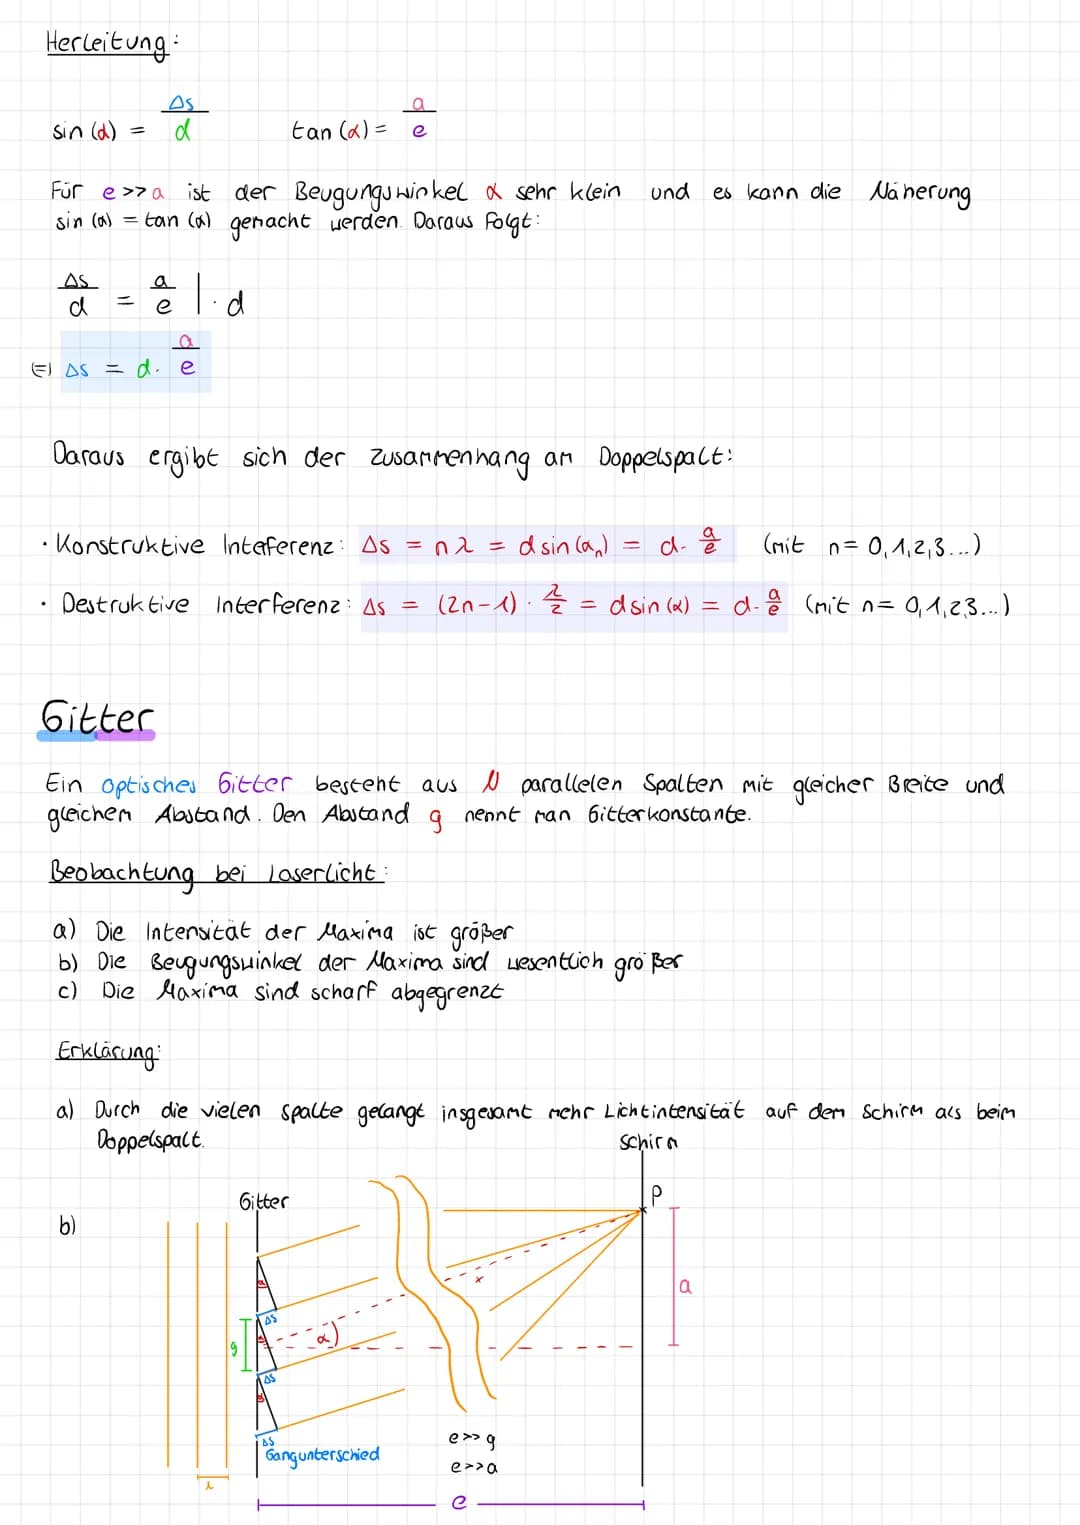 Herleitung:
sin (α) = Δs/d tan (α) = a/e
Für e >> a ist der Beugungswinkel α sehr klein und es kann die Näherung
sin (α) = tan (α) gemacht werden. Daraus folgt:
Δs/d = a/e | · d
(=) Δs = d · a/e
Daraus ergibt sich der Zusammenhang am Doppelspalt:
· Konstruktive Inteferenz: Δs = nλ = d sin(αn) = d · a/e (mit n= 0,1,2,3...)
· Destruktive Interferenz: Δs = (2n-1) · λ/2 = d sin (α) = d · a/e (mit n= 0,1,23...)
Gitter
Ein optisches Gitter besteht aus N parallelen Spalten mit gleicher Breite und
gleichem Abstand. Den Abstand g nennt man Gitterkonstante.
Beobachtung bei Laserlicht:
a) Die Intensität der Maxima ist größer
b) Die Beugungswinkel der Maxima sind wesentlich größer
c) Die Maxima sind scharf abgegrenzt
Erklärung:
a) Durch die vielen Spalte gelangt insgesamt mehr Lichtintensität auf dem Schirm als beim
Doppelspalt.
Schirm
Gitter
P
b)
α
a
Δs
g
α
α)
x
Δs
α
Δs
Gangunterschied
e>>g
e>>a
λ
e